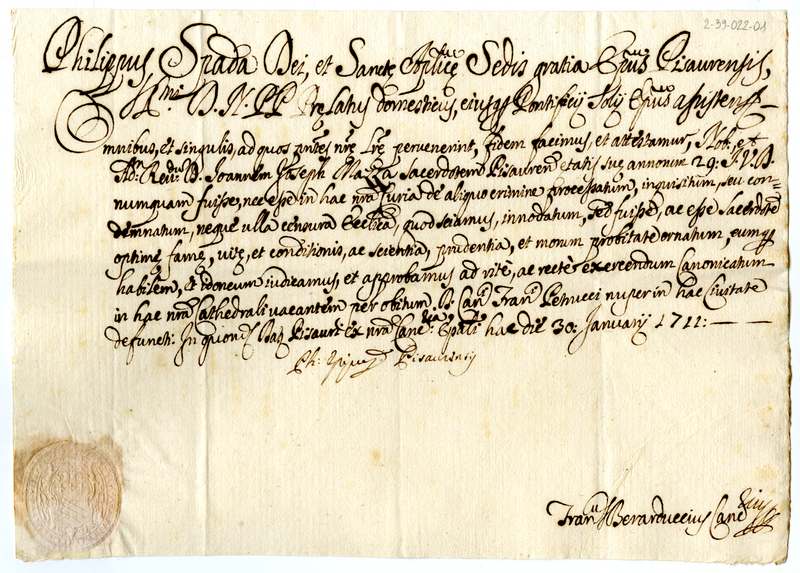 2-39-022-01
Philippus Spada Dei, et Sanctę Apl̃icę Sedis gratia Ep̃us Pisaurensis,
SS.mi D. N. PP Prelatus domesticus, eiusq̃ Pontificij Solij Ep̃us assistens
Omnibus, et singulis, ad quos pñtes nr̃ę Lr̃ę pervenerint, fidem facimus, et attestamur, Nob: et
Adm Revdum D. Joannem Joseph Mazza Sacerdotem Pisauren̄ etatis suę annorum 29: I.V.D.
numquam fuisse, nec esse in hac nrã Curia de aliquo crimine processatum, inquisitum, seu con=
demnatum, neque ulla censura Eccl̃ica, quod sciamus, innodatum, sed fuisse, ac esse Sacerdotẽ
optimę famę, vitę, et conditionis, ac scientia, prudentia, et morum probitate ornatum, eumq̃
habilem, et idoneum iudicamus, et approbamus ad ritè, ac rectè exercendum Canonicatum
in hac nrã Cathedrali vacantem per obitum D. Canci Franci Petrucci nuper in hac Civitate
defuncti. In quor. Dat Pisauri ex nrã Canc.ria Ep̃ali hac die 30: January 1711:
Ph: Episcus Pisaurensis
Francus Berarduccius Canc